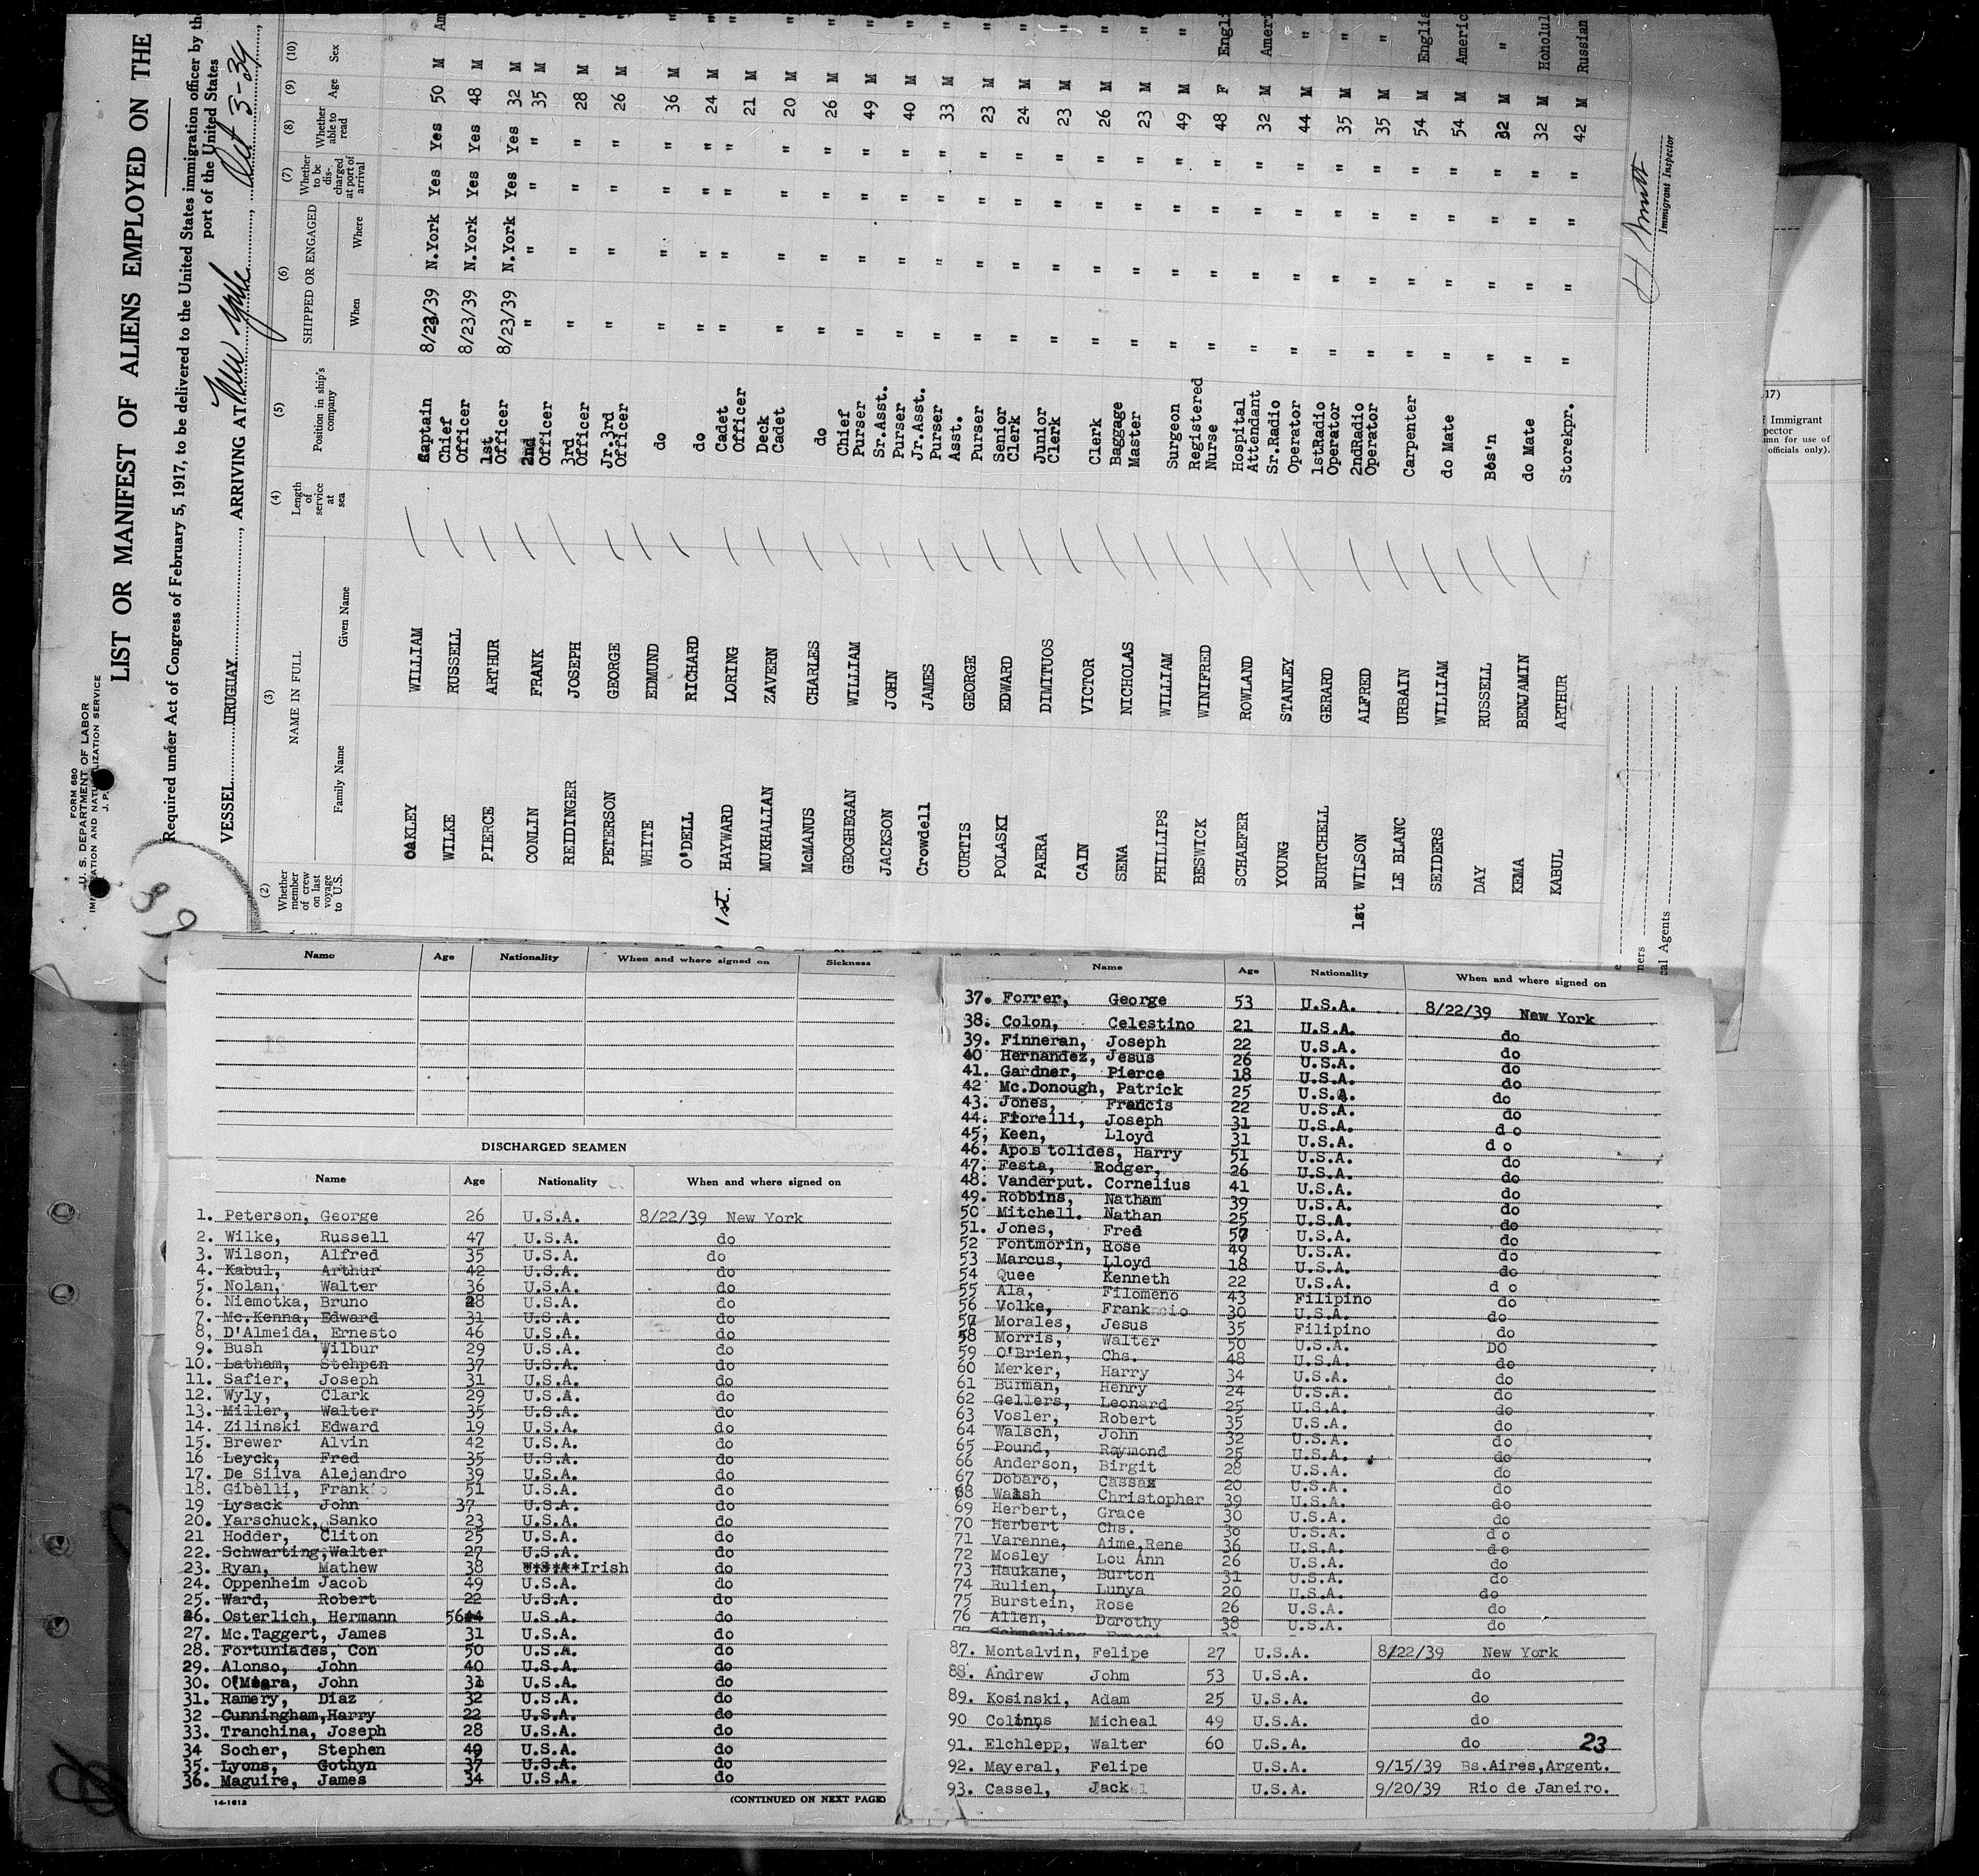 FORM 680
U. S. DEPARTMENT OF LABOR
LIST OR MANIFEST OF ALIENS EMPLOYED ON THE
Required under Act of Congress of February 5, 1917, to be delivered to the United States immigration officer by the
port of the United States
VESSEL URUGUAY, ARRIVING AT New York, Oct 3-39
(2) Whether member of crew on last voyage to U.S.
(3) NAME IN FULL Family Name Given Name
(4) Length of service at sea
(5) Position in ship's company
(6) SHIPPED OR ENGAGED When Where
(7) Whether to be discharged at port of arrival
(8) Whether able to read
(9) Age
(10) Sex
OAKLEY WILLIAM Captain 8/23/39 N.York Yes Yes 50 M Am
WILKE RUSSELL Chief Officer 8/23/39 N.York Yes Yes 48 M "
PIERCE ARTHUR 1st. Officer 8/23/39 N.York Yes Yes 32 M "
CONLIN FRANK 2nd Officer " " " " 35 M "
REIDINGER JOSEPH 3rd Officer " " " " 28 M "
PETERSON GEORGE Jr.3rd Officer " " " " 26 M "
WHITE EDMUND do " " " " 36 M "
O'DELL RICHARD do " " " " 24 M "
1st. HAYWARD LORING Cadet Officer " " " " 21 M "
MUKHALIAN ZAVERN Deck Cadet " " " " 20 M "
McMANUS CHARLES do " " " " 26 M "
GEOGHEGAN WILLIAM Chief Purser " " " " 49 M "
JACKSON JOHN Sr.Asst. Purser " " " " 40 M "
Crowdell JAMES Jr.Asst. Purser " " " " 33 M "
CURTIS GEORGE Asst. Purser " " " " 23 M "
POLASKI EDWARD Senior Clerk " " " " 24 M "
PAERA DIMITUOS Junior Clerk " " " " 23 M "
CAIN VICTOR Clerk " " " " 26 M "
SENA NICHOLAS Baggage Master " " " " 23 M "
PHILLIPS WILLIAM Surgeon " " " " 49 M "
BESWICK WINIFRED Registered Nurse " " " " 48 F Engli
SCHAEFER ROWLAND Hospital Attendant " " " " 32 M Ameri
YOUNG STANLEY Sr.Radio Operator " " " " 44 M "
BURTCHELL GERARD 1stRadio Operator " " " " 35 M "
1st WILSON ALFRED 2ndRadio Operator " " " " 35 M "
LE BLANC URBAIN Carpenter " " " " 54 M Englis
SEIDERS WILLIAM do Mate " " " " 54 M Americ
DAY RUSSELL Bos'n " " " " 32 M "
KEMA BENJAMIN do Mate " " " " 32 M Honolul
KABUL ARTHUR Storekpr. " " " " 42 M Russian
Immigrant Inspector
17)
Immigrant
pector
umn for use of
officials only).
ners
cal Agents
Name Age Nationality When and where signed on Sickness
DISCHARGED SEAMEN
Name Age Nationality When and where signed on
1. Peterson, George 26 U.S.A. 8/22/39 New York
2. Wilke, Russell 47 U.S.A. do
3. Wilson, Alfred 35 U.S.A. do
4. Kabul, Arthur 42 U.S.A. do
5. Nolan, Walter 36 U.S.A. do
6. Niemotka, Bruno 28 U.S.A. do
7. Mc.Kenna, Edward 31 U.S.A. do
8, D'Almeida, Ernesto 46 U.S.A. do
9. Bush Wilbur 29 U.S.A. do
10. Latham, Stehpen 37 U.S.A. do
11. Safier, Joseph 31 U.S.A. do
12. Wyly, Clark 29 U.S.A. do
13. Miller, Walter 35 U.S.A. do
14. Zilinski Edward 19 U.S.A. do
15. Brewer Alvin 42 U.S.A. do
16 Leyck, Fred 35 U.S.A. do
17. De Silva Alejandro 39 U.S.A. do
18. Gibelli, Frank 51 U.S.A. do
19 Lysack John 37 U.S.A. do
20. Yarschuck, Sanko 23 U.S.A. do
21 Hodder, Cliton 25 U.S.A. do
22. Schwarting,Walter 27 U.S.A. do
23. Ryan, Mathew 38 Irish do
24. Oppenheim Jacob 49 U.S.A. do
25. Ward, Robert 22 U.S.A. do
26. Osterlich, Hermann 56 U.S.A. do
27. Mc.Taggert, James 31 U.S.A. do
28. Fortuniades, Con 50 U.S.A. do
29. Alonso, John 40 U.S.A. do
30. O'Meara, John 31 U.S.A. do
31. Ramery, Diaz 32 U.S.A. do
32 Cunningham,Harry 22 U.S.A. do
33. Tranchina, Joseph 28 U.S.A. do
34 Socher, Stephen 49 U.S.A. do
35. Lyons, Gothyn 37 U.S.A. do
36. Maguire, James 34 U.S.A. do
14-1613 (CONTINUED ON NEXT PAGE)
Name Age Nationality When and where signed on
37. Forrer, George 53 U.S.A. 8/22/39 New York
38. Colon, Celestino 21 U.S.A. do
39. Finneran, Joseph 22 U.S.A. do
40 Hernandez, Jesus 26 U.S.A. do
41. Gardner, Pierce 18 U.S.A. do
42 Mc.Donough, Patrick 25 U.S.A. do
43. Jones, Francis 22 U.S.A. do
44. Fiorelli, Joseph 31 U.S.A. do
45, Keen, Lloyd 31 U.S.A. do
46. Apostolides, Harry 51 U.S.A. do
47. Festa, Rodger, 26 U.S.A. do
48. Vanderput. Cornelius 41 U.S.A. do
49. Robbins, Natham 39 U.S.A. do
50 Mitchell. Nathan 25 U.S.A. do
51. Jones, Fred 57 U.S.A. do
52 Fontmorin, Rose 49 U.S.A. do
53 Marcus, Lloyd 18 U.S.A. do
54 Quee Kenneth 22 U.S.A. do
55 Ala, Filomeno 43 Filipino do
56 Volke, Frank 30 U.S.A. do
57 Morales, Jesus 35 Filipino do
58 Morris, Walter 50 U.S.A. DO
59 O'Brien, Chs. 48 U.S.A. do
60 Merker, Harry 34 U.S.A. do
61 Burman, Henry 24 U.S.A. do
62 Gellers, Leonard 25 U.S.A. do
63 Vosler, Robert 35 U.S.A. do
64 Walsch, John 32 U.S.A. do
65 Pound, Raymond 25 U.S.A. do
66 Anderson, Birgit 28 U.S.A. do
67 Dobaro, Cassax 20 U.S.A. do
68 Walsh Christopher 39 U.S.A. do
69 Herbert, Grace 30 U.S.A. do
70 Herbert Chs. 38 U.S.A. do
71 Varenne, Aime,Rene 36 U.S.A. do
72 Mosley Lou Ann 26 U.S.A. do
73 Haukane, Burton 31 U.S.A. do
74 Rulien, Lunya 20 U.S.A. do
75 Burstein, Rose 26 U.S.A. do
76 Allen, Dorothy 38 U.S.A. do
87. Montalvin, Felipe 27 U.S.A. 8/22/39 New York
88. Andrew Johm 53 U.S.A. do
89. Kosinski, Adam 25 U.S.A. do
90 Colinns Micheal 49 U.S.A. do
91. Elchlepp, Walter 60 U.S.A. do 23
92. Mayeral, Felipe U.S.A. 9/15/39 Bs.Aires,Argent.
93. Cassel, Jack U.S.A. 9/20/39 Rio de Janeiro.